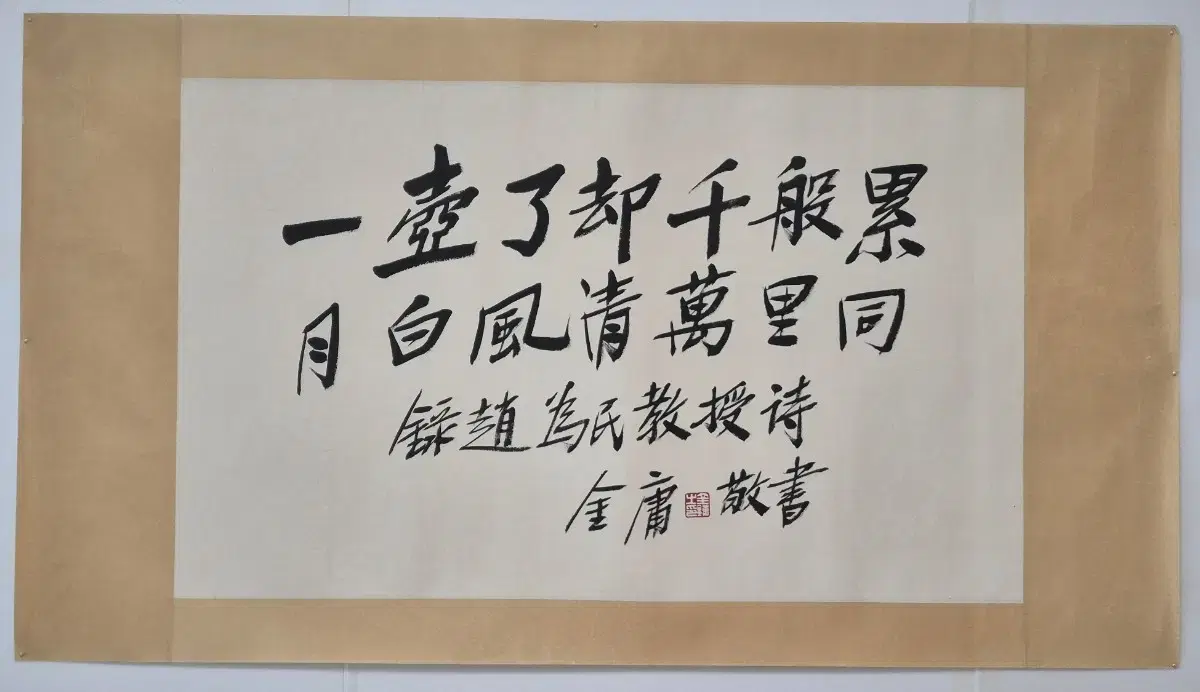 一壺了却千般累
月白風清萬里同
錄趙為民教授诗
金庸敬書